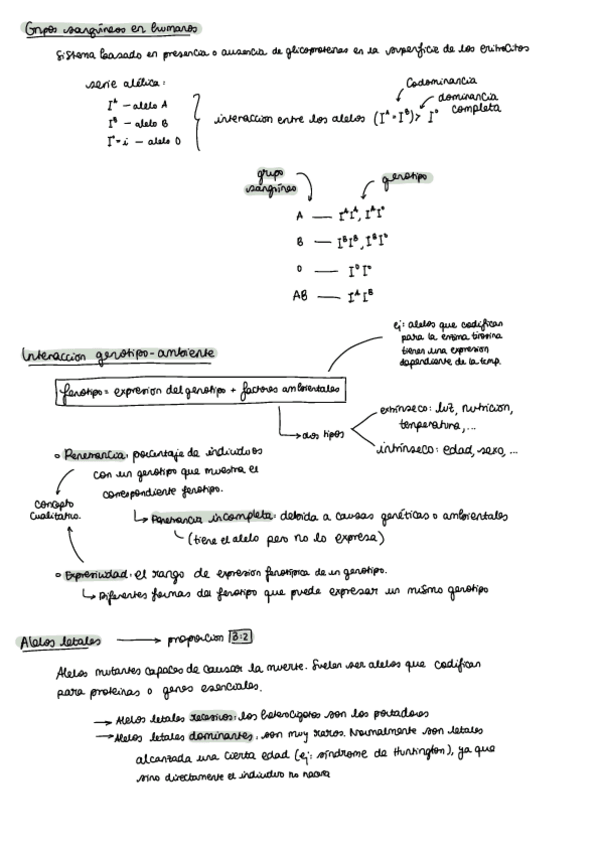 Grupos sanguíneos en humanos
Sistema basado en presencia o ausencia de glicoproteinas en la superficie de los eritrocitos
serie alélica:
Iᴬ – alelo A
Iᴮ – alelo B
I°=i – alelo O
interaccion entre los alelos (Iᴬ=Iᴮ)> I°
Codominancia
dominancia completa
grupo sanguíneo
genotipo
A — IᴬIᴬ, IᴬI°
B — IᴮIᴮ, IᴮI°
O — I°I°
AB — IᴬIᴮ
Interaccion genotipo-ambiente
ej: alelos que codifican
para la enzima tirosina
tienen una expresion
dependiente de la temp.
fenotipo = expresion del genotipo + factores ambientales
dos tipos
extrínseco: luz, nutricion,
temperatura,...
intrínseco: edad, sexo, ...
Penetrancia: porcentaje de individuos
con un genotipo que muestra el
correspondiente fenotipo.
Penetrancia incompleta: debida a causas genéticas o ambientales
(tiene el alelo pero no lo expresa)
concepto
cualitativo.
Expresividad: el rango de expresion fenotípica de un genotipo.
Diferentes formas del fenotipo que puede expresar un mismo genotipo
Alelos letales → proporcion 3:2
Alelos mutantes capaces de causar la muerte. Suelen ser alelos que codifican
para proteínas o genes esenciales.
→ Alelos letales recesivos: los heterocigotos son los portadores
→ Alelos letales dominantes: son muy raros. Normalmente son letales
alcanzada una cierta edad (ej: síndrome de Huntington), ya que
sino directamente el individuo no nacera